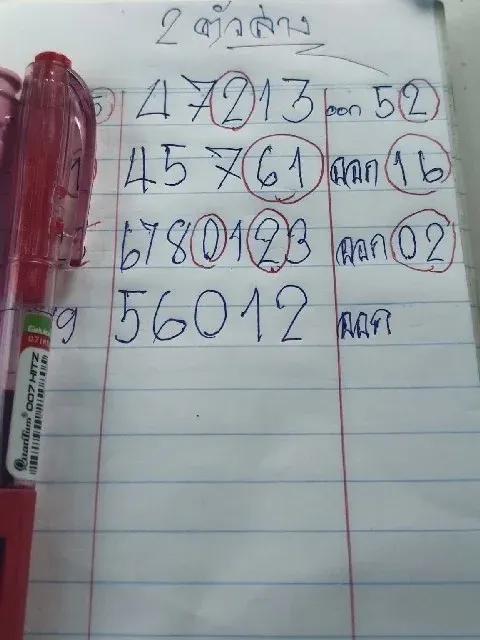 2 ตัวล่าง
5 47213 ออก 52
1 45761 ออก 16
6780123 ออก 02
9 56012 ออก
Quantum 007 HITZ